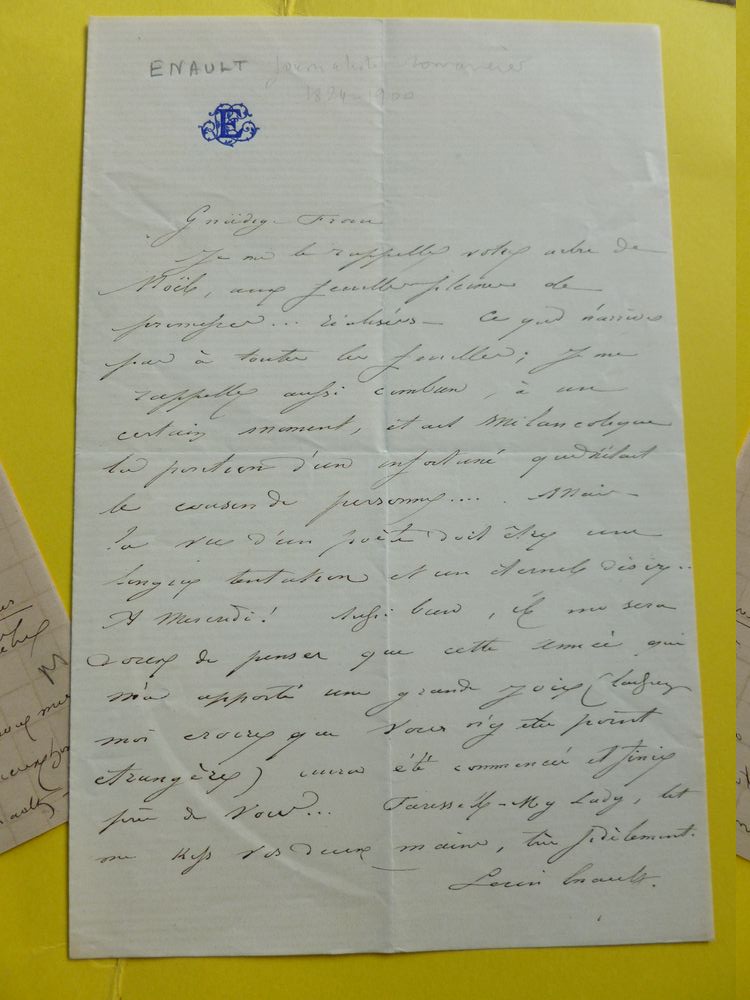 ENAULT journaliste romancier
1824-1900
E
Gnädige Frau
Je me le rappelle votre arbre de
Noël, aux feuilles pleines de
promesses... réalisées — Ce qui n'arrive
pas à toutes les feuilles; Je me
rappelle aussi combien, à un
certain moment, était mélancolique
la position d'un infortuné qui n'était
le cousin de personne.... Mais
la vie d'un poète doit être une
longue tentation et un éternel désir..
A Mercredi! Aussi bien, il me sera
doux de penser que cette année qui
m'a apporté une grande joie (laissez
moi croire que vous n'y êtes point
étrangère) aura été commencée et finie
près de vous... Farewell — My Lady, let
me kiss vos deux mains, très fidèlement.
Louis Enault.